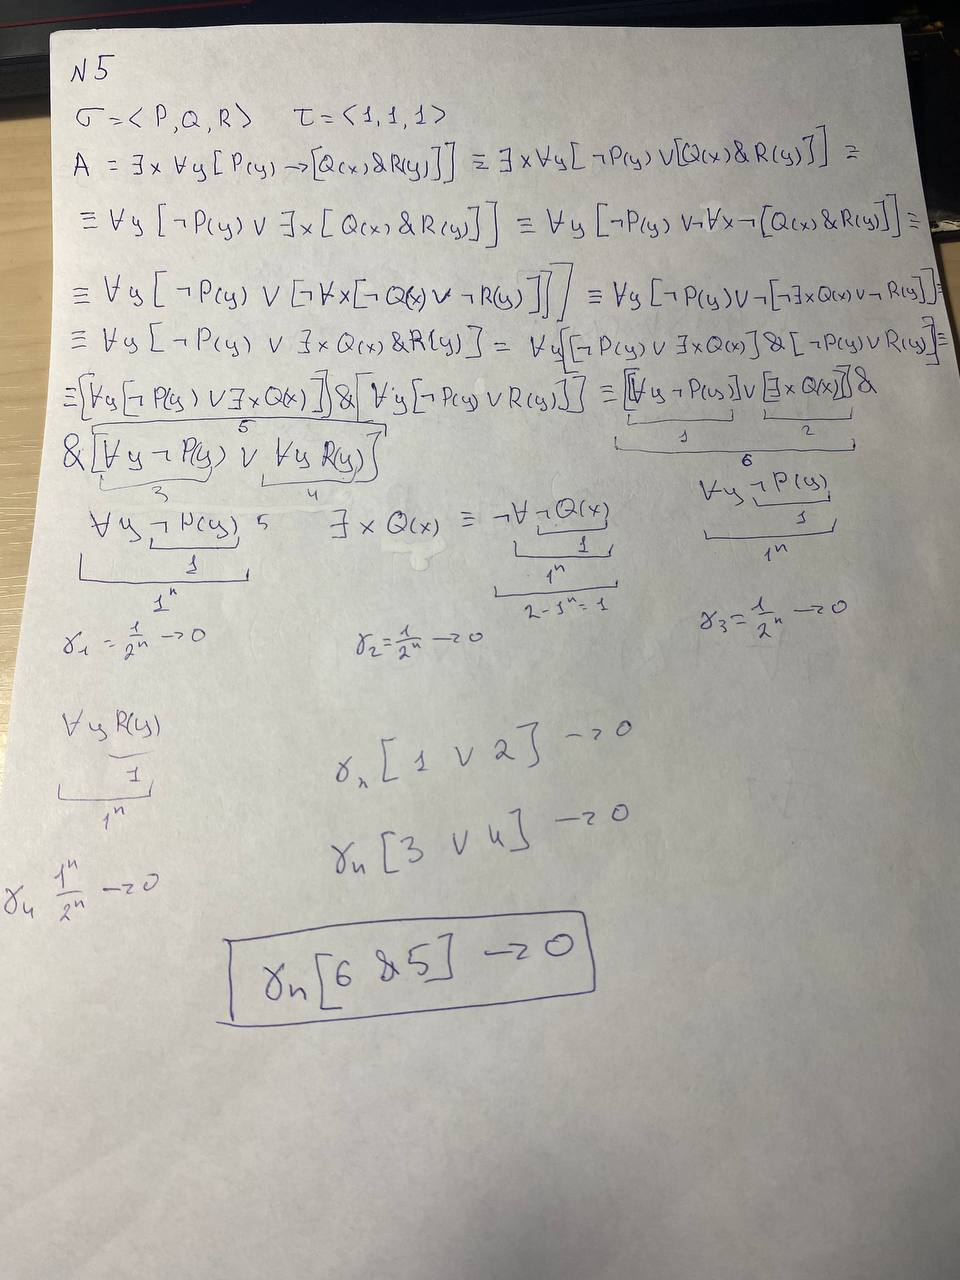 N5
σ = <P, Q, R> τ = <1, 1, 1>
A = ∃x ∀y [P(y) → [Q(x) & R(y)]] ≡ ∃x ∀y [¬P(y) ∨ [Q(x) & R(y)]] ≡
≡ ∀y [¬P(y) ∨ ∃x [Q(x) & R(y)]] ≡ ∀y [¬P(y) ∨ ¬∀x ¬[Q(x) & R(y)]] ≡
≡ ∀y [¬P(y) ∨ [¬∀x [¬Q(x) ∨ ¬R(y)]]] ≡ ∀y [¬P(y) ∨ ¬[¬∃x Q(x) ∨ ¬R(y)]] ≡
≡ ∀y [¬P(y) ∨ ∃x Q(x) & R(y)] = ∀y [[¬P(y) ∨ ∃x Q(x)] & [¬P(y) ∨ R(y)]] ≡
≡ [∀y [¬P(y) ∨ ∃x Q(x)]] & [∀y [¬P(y) ∨ R(y)]] ≡ [[∀y ¬P(y)] ∨ [∃x Q(x)]] &
1 2
5 6
& [∀y ¬P(y) ∨ ∀y R(y)]
3 4
∀y ¬P(y) 5 ∃x Q(x) ≡ ¬∀ ¬Q(x) ∀y ¬P(y)
1 1 1
1ⁿ 1ⁿ 1ⁿ
2 - 1ⁿ = 1
γ₁ = 1/2ⁿ → 0 γ₂ = 1/2ⁿ → 0 γ₃ = 1/2ⁿ → 0
∀y R(y)
1
1ⁿ
γ₄ 1ⁿ/2ⁿ → 0
γₙ [1 ∨ 2] → 0
γₙ [3 ∨ 4] → 0
γₙ [6 & 5] → 0